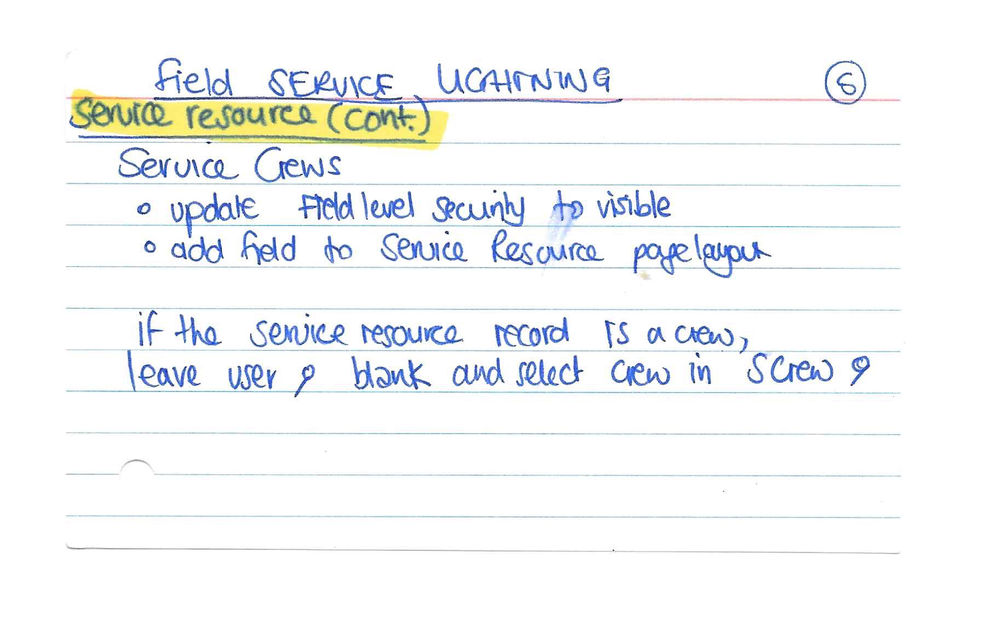 Field SERVICE LIGHTNING 6
Service resource (cont.)
Service Crews
• update Field level security to visible
• add field to Service Resource page layout
if the service resource record is a crew,
leave user blank and select crew in S Crew